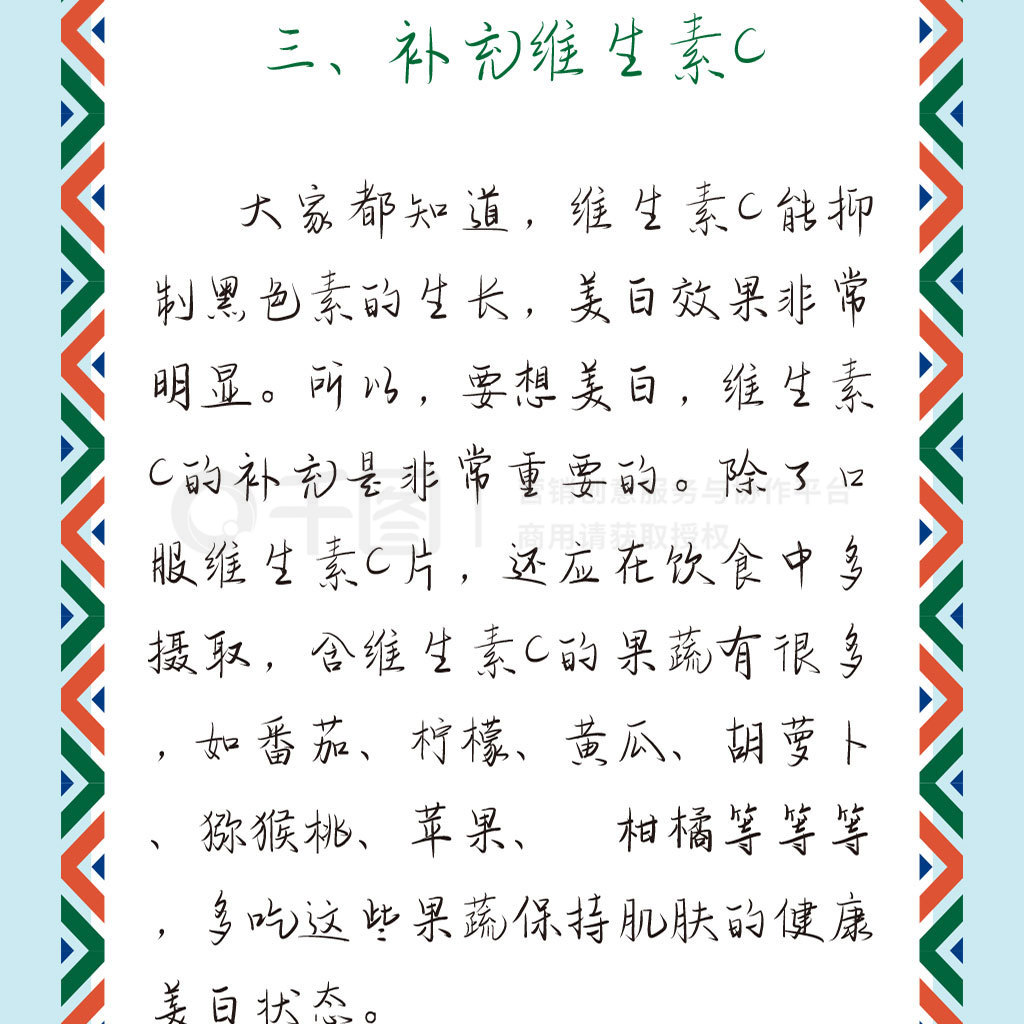 三、补充维生素C
大家都知道，维生素C能抑
制黑色素的生长，美白效果非常
明显。所以，要想美白，维生素
C的补充是非常重要的。除了口
服维生素C片，还应在饮食中多
摄取，含维生素C的果蔬有很多
，如番茄、柠檬、黄瓜、胡萝卜
、猕猴桃、苹果、 柑橘等等等
，多吃这些果蔬保持肌肤的健康
美白状态。
千图
营销创意服务与协作平台
商用请获取授权